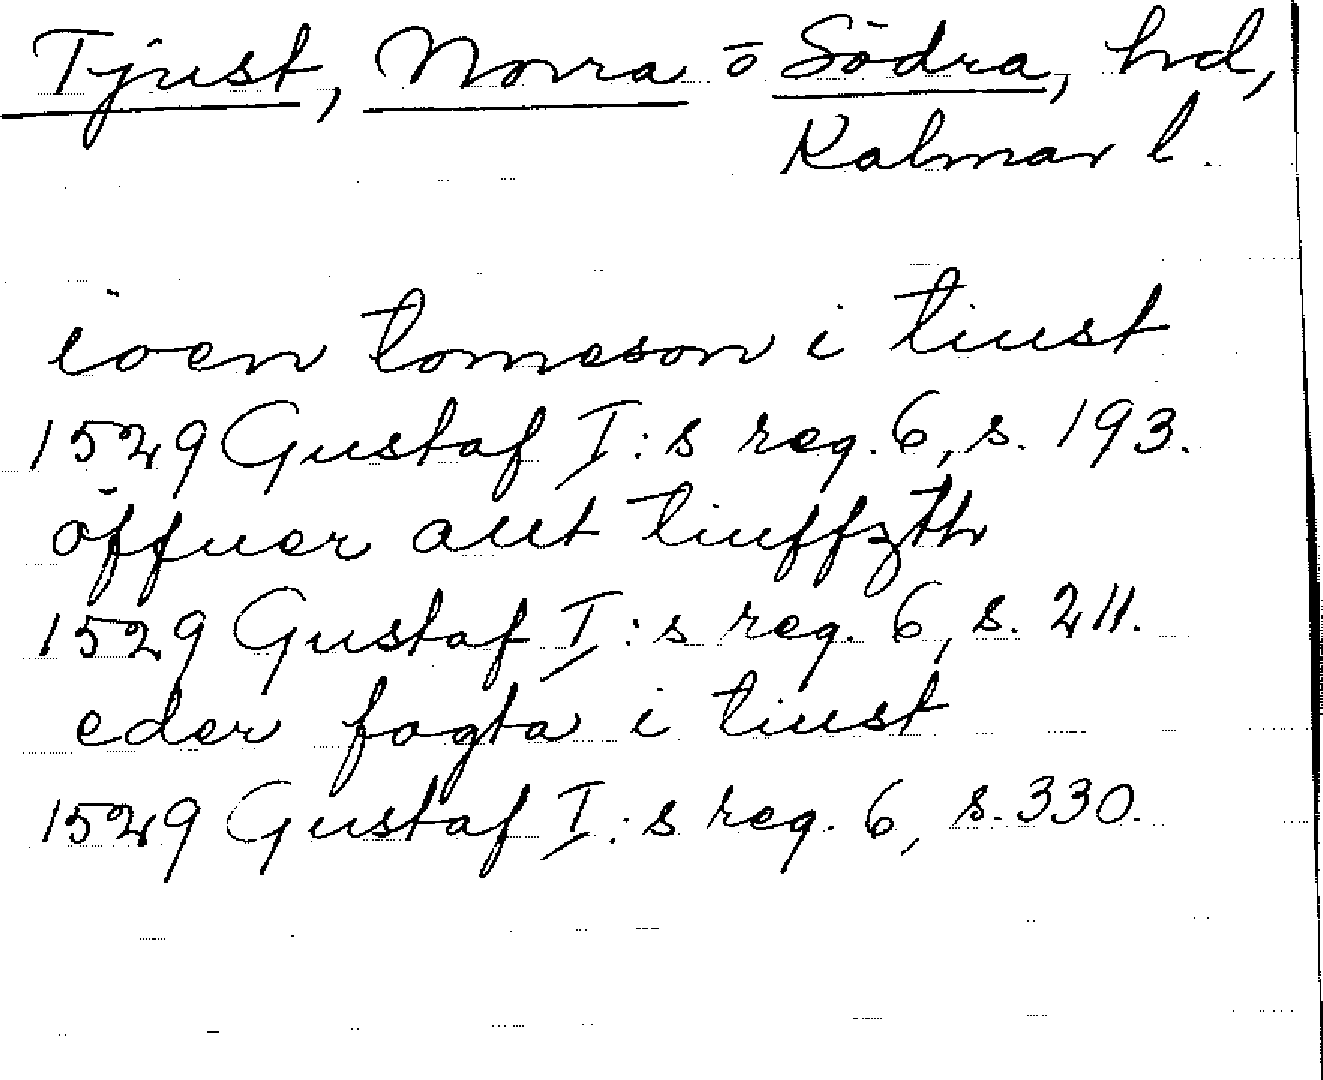 Tjust, Norra o Södra, hd,
Kalmar l.
ioen tomeson i tiust
1529 Gustaf I:s reg. 6, s. 193.
öffuer allt tiuffzth
1529 Gustaf I:s reg. 6, s. 211.
eder fogta i tiust
1529 Gustaf I:s reg. 6, s. 330.